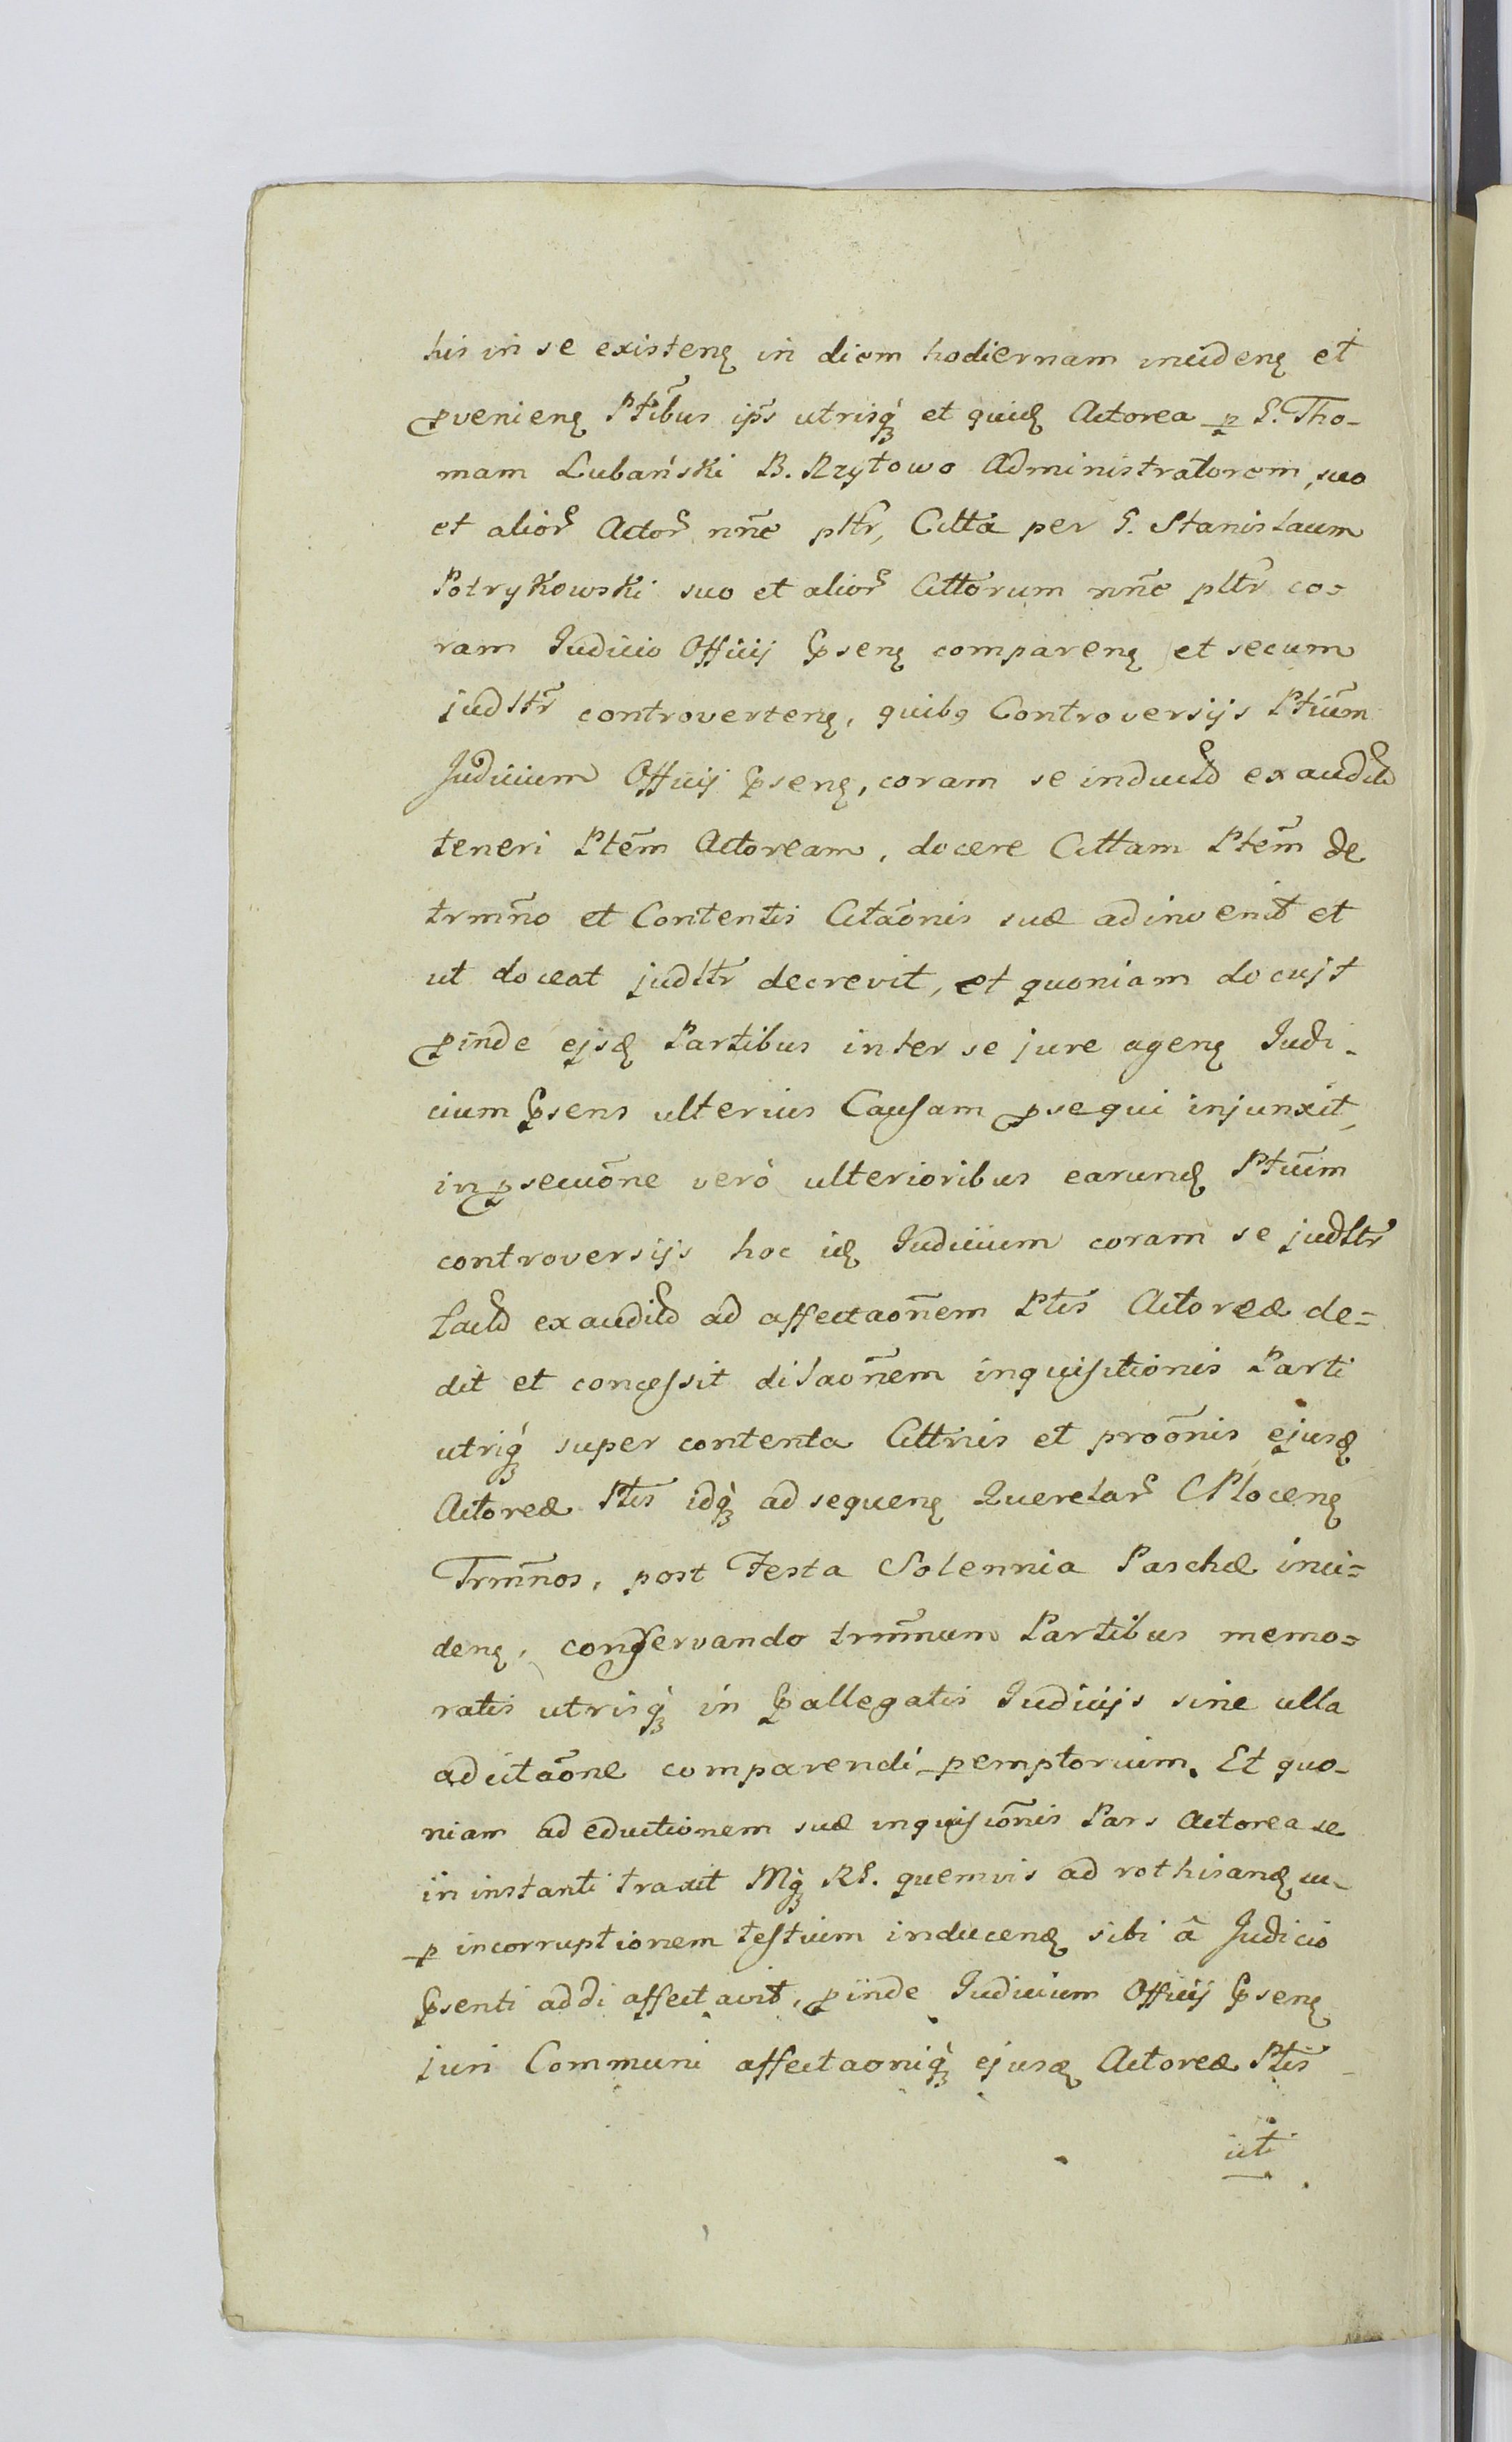 his in se existenę in diem hodiernam incidenę et
pvenienę Ptibus ips utrisq́ et quid̨ Actorea p G. Tho-
mam Lubański B. Rzytowo Administratorem, suo
et alior Actor nñe pltr, Citta per G. Stanislaum
Potrykowski suo et alior Cittorum nñe pltr co=
ram Judicio Officij Psenę comparenę et secum
judltr controvertenę, quibꝯ Controversijs Ptium
Judicium Officij Psenę, coram se inductis exauditis
teneri Ptem Actoream, docere Cittam Ptem de
trmño et Contentis Citaõnis suæ adinvenit et
ut doceat judltr decrevit, et quoniam docujt
pinde ejsd̨ Partibus inter se jure agenę Judi-
cium Psens ulterius Causam psequi injunxit,
in psecuõne verò ulterioribus earund̨ Ptium
controversijs hoc id̨ Judicium coram se judltr
factis exauditis ad affectaoñem Ptis Actoreæ de=
dit et concessit dilaoñem inquisitionis Parti
utriq́ super contenta Cittnis et proõnis ejusd̨
Actoreæ Ptis idq́ ad sequenę Querelar CPlocenę
Trmños, post Festa Solennia Paschæ inci=
denę, conservando trmñum Partibus memo=
ratis utrisq́ in Pallegatis Judicijs sine ulla
adcitaõne comparendi pemptorium. Et quo-
niam ad eductionem suæ inquisiõnis Pars Actorea se
in instanti traxit Mq́ RG. quemvis ad rothisand̨ cu-
p incorruptionem testium inducend̨ sibi â Judicio
Psenti addi affectavit, pinde Judicium Officij Psenę
juri Communi affectaoniq́ ejusd̨ Actoreæ Ptis
uti